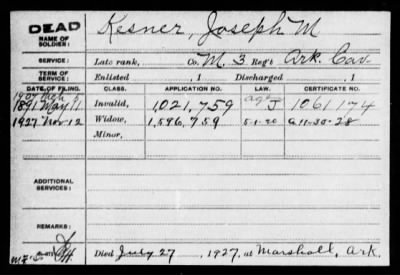 DEAD
NAME OF SOLDIER: Kesner, Joseph M
SERVICE: Late rank, Co. M, 3 Reg't Ark. Cav.
TERM OF SERVICE: Enlisted , 1 Discharged , 1
DATE OF FILING. CLASS. APPLICATION NO. LAW. CERTIFICATE NO.
1907
1891 May 11 Invalid, 1,021,759 age J 1061174
1927 Nov 12 Widow, 1,596,759 5-1-20 11-30-28
Minor,
ADDITIONAL SERVICES:
REMARKS:
Died July 27, 1927, at Marshall, Ark.